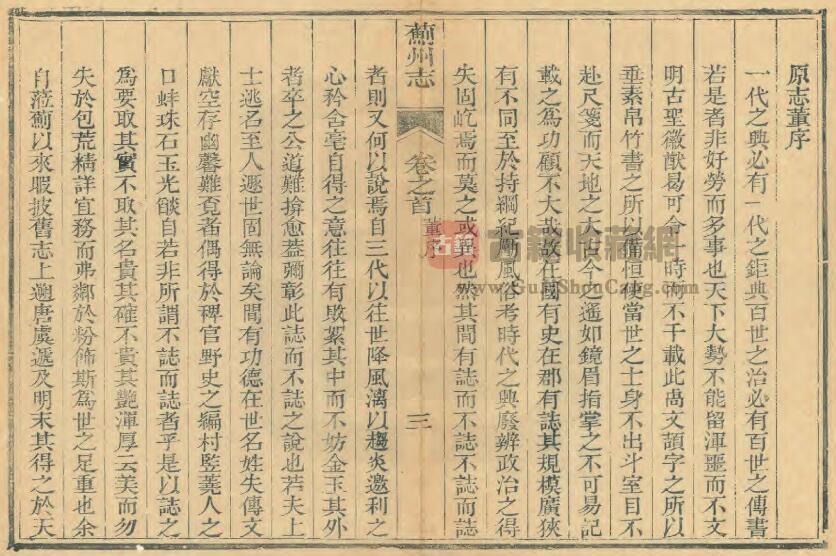 原志董序
一代之興必有一代之鉅典百世之治必有百世之傳書
若是者非好勞而多事也天下大勢不能留渾噩而不文
明古聖徽猷曷可合一時而不千載此卨文頡字之所以
垂素帛竹書之所以備恒使當世之士身不出斗室目不
赴尺箋而天地之大古今之遙如鏡眉指掌之不可易記
載之為功顧不大哉故在國有史在郡有誌其規模廣狹
有不同至於持綱紀勵風俗考時代之興廢辨政治之得
失固屹焉而莫之或異也然其間有誌而不誌不誌而誌
薊州志
卷之首
董序
三
者則又何以說焉自三代以往世降風漓以趨炎邀利之
心矜含毫自得之意往往有敗絮其中而不妨金玉其外
者卒之公道難揜愈蓋彌彰此誌而不誌之說也若夫上
士逃名至人遯世固無論矣間有功德在世名姓失傳文
獻空存幽馨難覓者偶得於稗官野史之編村監蕘人之
口蚌珠石玉光燄自若非所謂不誌而誌者乎是以誌之
為要取其實不取其名貴其確不貴其艷渾厚云美而勿
失於包荒精詳宜務而弗鄰於粉飾斯為世之足重也余
自蒞薊以來暇披舊志上遡唐虞遞及明末其得之於天
古籍
古籍收藏網
www.GuJiShouCang.com